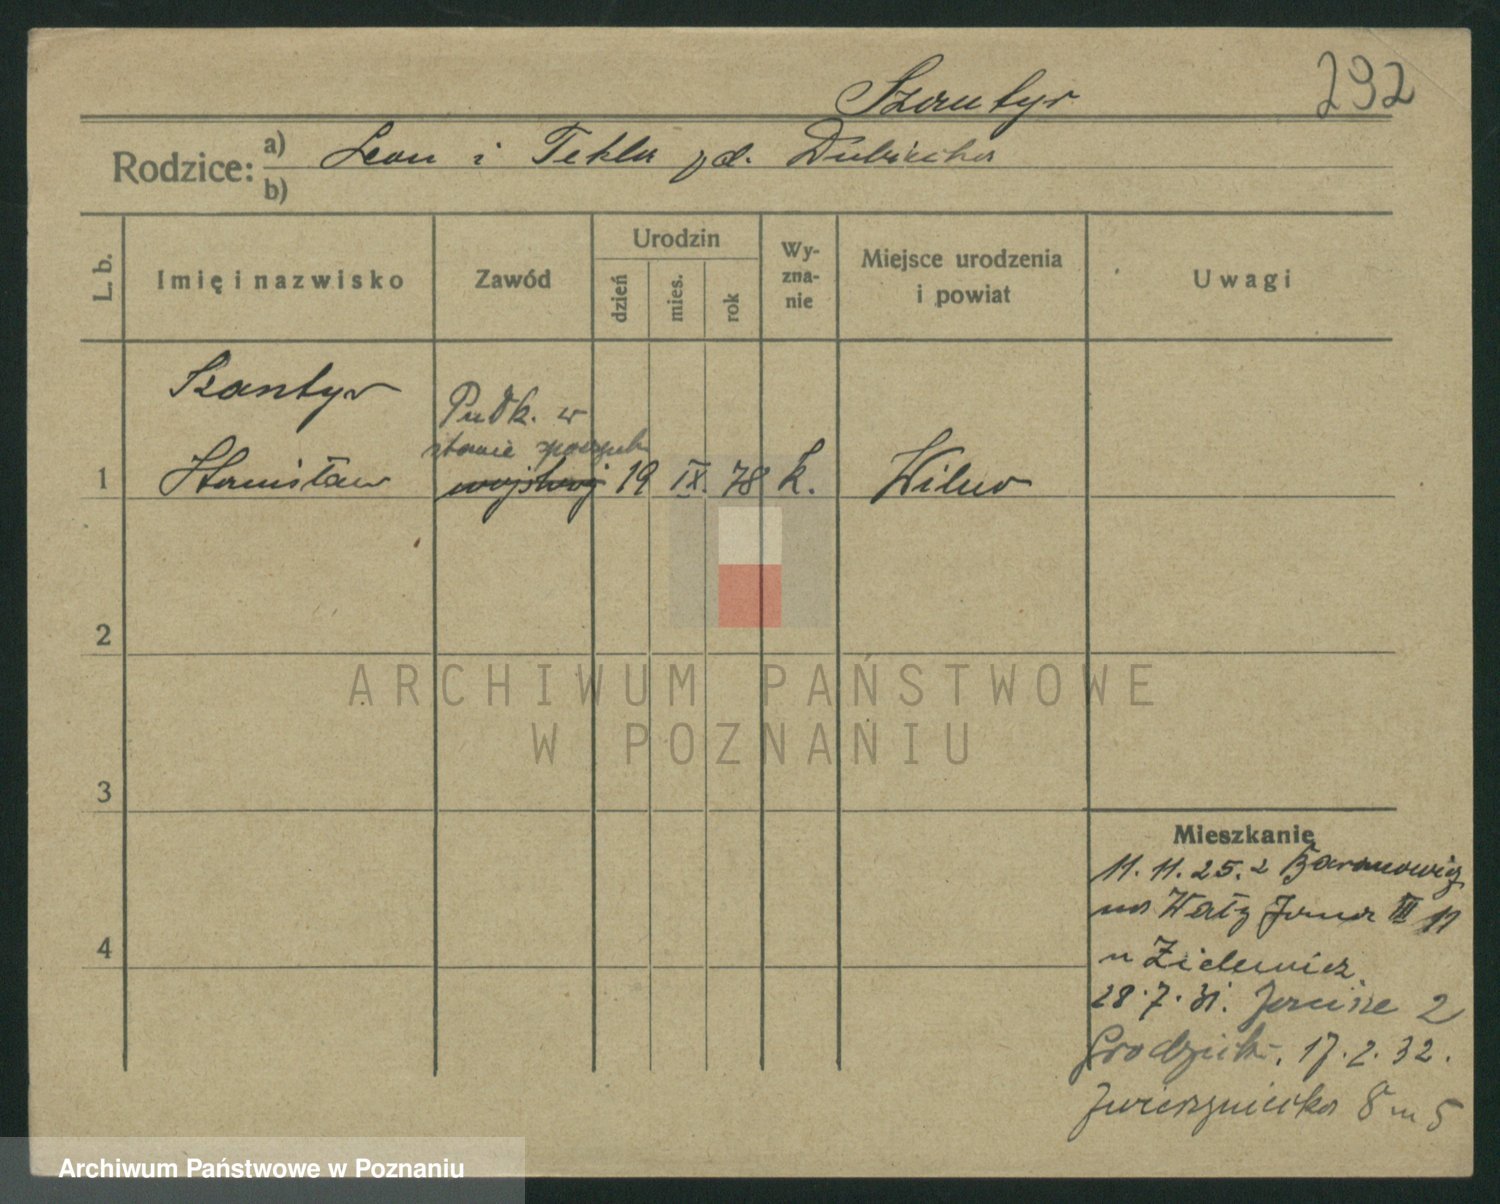 Szantyr
292
Rodzice:
a) Leon i Tekla z d. Dubicka
b)
L. b.
Imię i nazwisko
Zawód
Urodzin
dzień
mies.
rok
Wy-
zna-
nie
Miejsce urodzenia
i powiat
Uwagi
Szantyr
Pułk. w
stanie spoczynk
1 Stanisław wojskowy 19 IX. 78 k. Wilno
2
3
4
ARCHIWUM PAŃSTWOWE
W POZNANIU
Mieszkanie
11. 11. 25. z Baranowicz
na Wały Jana III 11
u Zielewicz
28.7.31.
Grodzisk. 17.2.32.
Zwierzyniecka 8 m 5
Archiwum Państwowe w Poznaniu